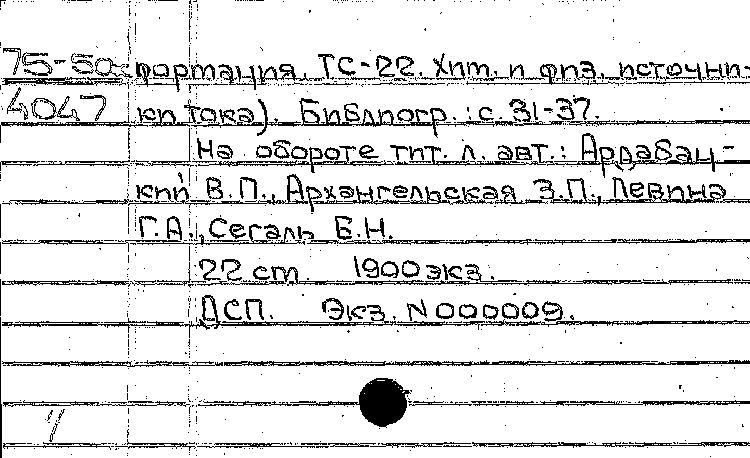 75-5а формация. ТС-22. Хим. и физ. источни-
4047 ки тока). Библиогр.: с. 31-37.
На обороте тит. л. авт.: Ардабац-
кий В.П., Архангельская З.П., Левина
Г.А., Сегаль Е.Н.
22 см. 1900 экз.
ДСП. Экз. N 000009.